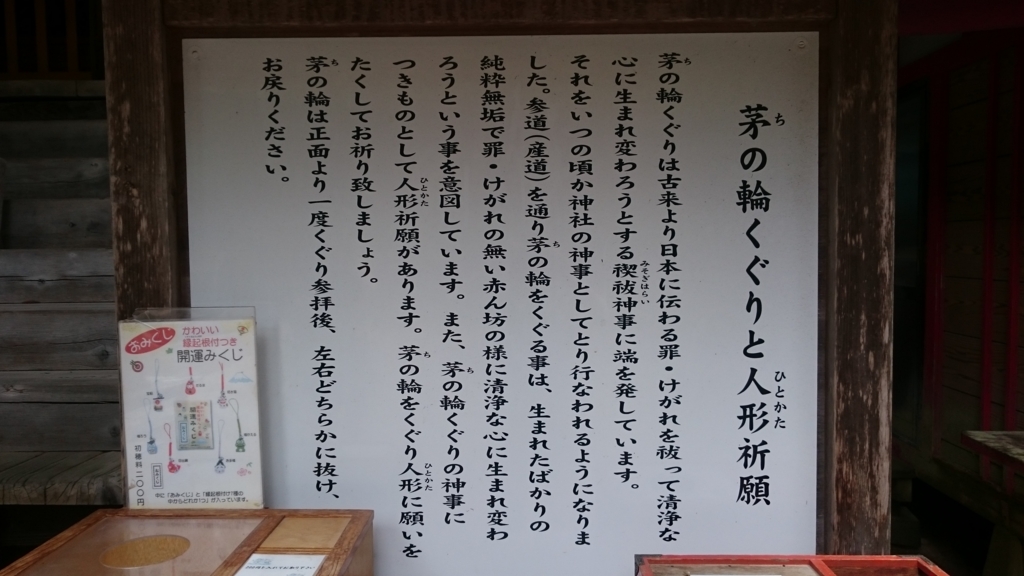 茅の輪くぐりと人形祈願
ち
ひとかた
茅の輪くぐりは古来より日本に伝わる罪・けがれを祓って清浄な
ち
心に生まれ変わろうとする禊祓神事に端を発しています。
みそぎはらい
それをいつの頃か神社の神事としてとり行なわれるようになりま
した。参道(産道)を通り茅の輪をくぐる事は、生まれたばかりの
ち
純粋無垢で罪・けがれの無い赤ん坊の様に清浄な心に生まれ変わ
ろうという事を意図しています。また、茅の輪くぐりの神事に
ち
つきものとして人形祈願があります。茅の輪をくぐり人形に願いを
ひとかた
ち
ひとかた
たくしてお祈り致しましょう。
茅の輪は正面より一度くぐり参拝後、左右どちらかに抜け、
ち
お戻りください。
おみくじ
かわいい
縁起根付つき
開運みくじ
初穂料二〇〇円
中に「おみくじ」と「縁起根付の7種の
中からどれか1つ」が入っています。